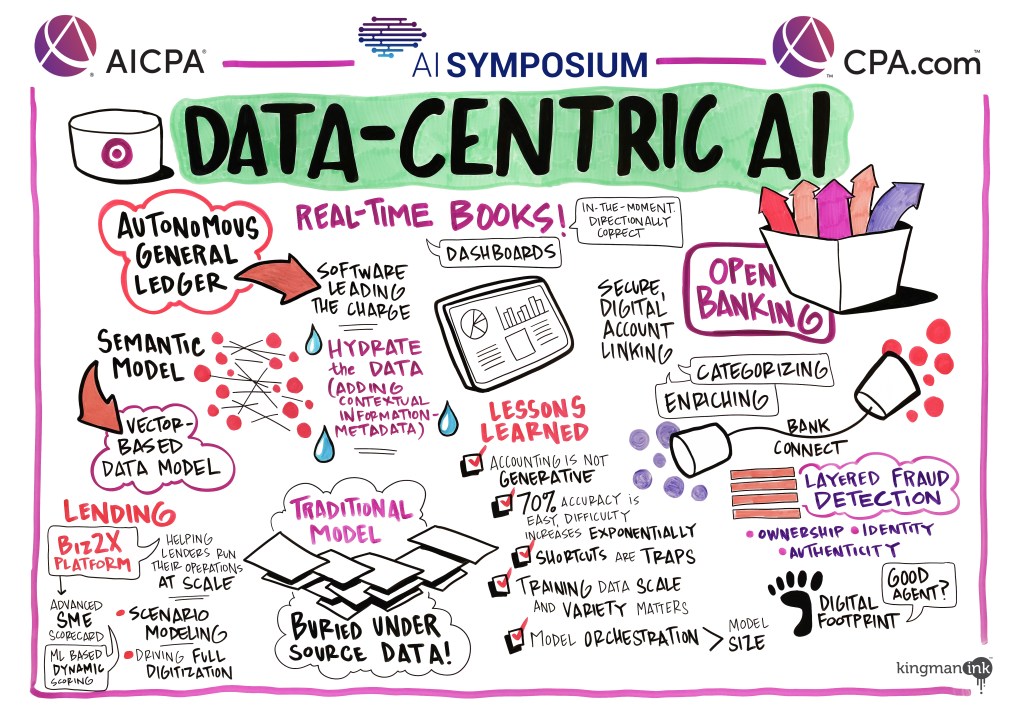 AICPA
AI SYMPOSIUM
CPA.com
DATA-CENTRIC AI
AUTONOMOUS
GENERAL
LEDGER
REAL-TIME BOOKS!
IN-THE-MOMENT.
DIRECTIONALLY
CORRECT
DASHBOARDS
SOFTWARE
LEADING
THE CHARGE
SECURE,
DIGITAL
ACCOUNT
LINKING
OPEN
BANKING
SEMANTIC
MODEL
HYDRATE
the DATA
(ADDING
CONTEXTUAL
INFORMATION-
METADATA)
VECTOR-
BASED
DATA MODEL
CATEGORIZING
ENRICHING
BANK
CONNECT
LESSONS
LEARNED
ACCOUNTING IS NOT
GENERATIVE
70% ACCURACY IS
EASY, DIFFICULTY
INCREASES EXPONENTIALLY
SHORTCUTS ARE TRAPS
TRAINING DATA SCALE
AND VARIETY MATTERS
MODEL ORCHESTRATION > MODEL
SIZE
LAYERED FRAUD
DETECTION
• OWNERSHIP • IDENTITY
• AUTHENTICITY
DIGITAL
FOOTPRINT
GOOD
AGENT?
LENDING
BIZ2X
PLATFORM
HELPING
LENDERS RUN
THEIR OPERATIONS
AT SCALE
ADVANCED
SME
SCORECARD
ML BASED
DYNAMIC
SCORING
• SCENARIO
MODELING
• DRIVING FULL
DIGITIZATION
TRADITIONAL
MODEL
BURIED UNDER
SOURCE DATA!
kingman ink